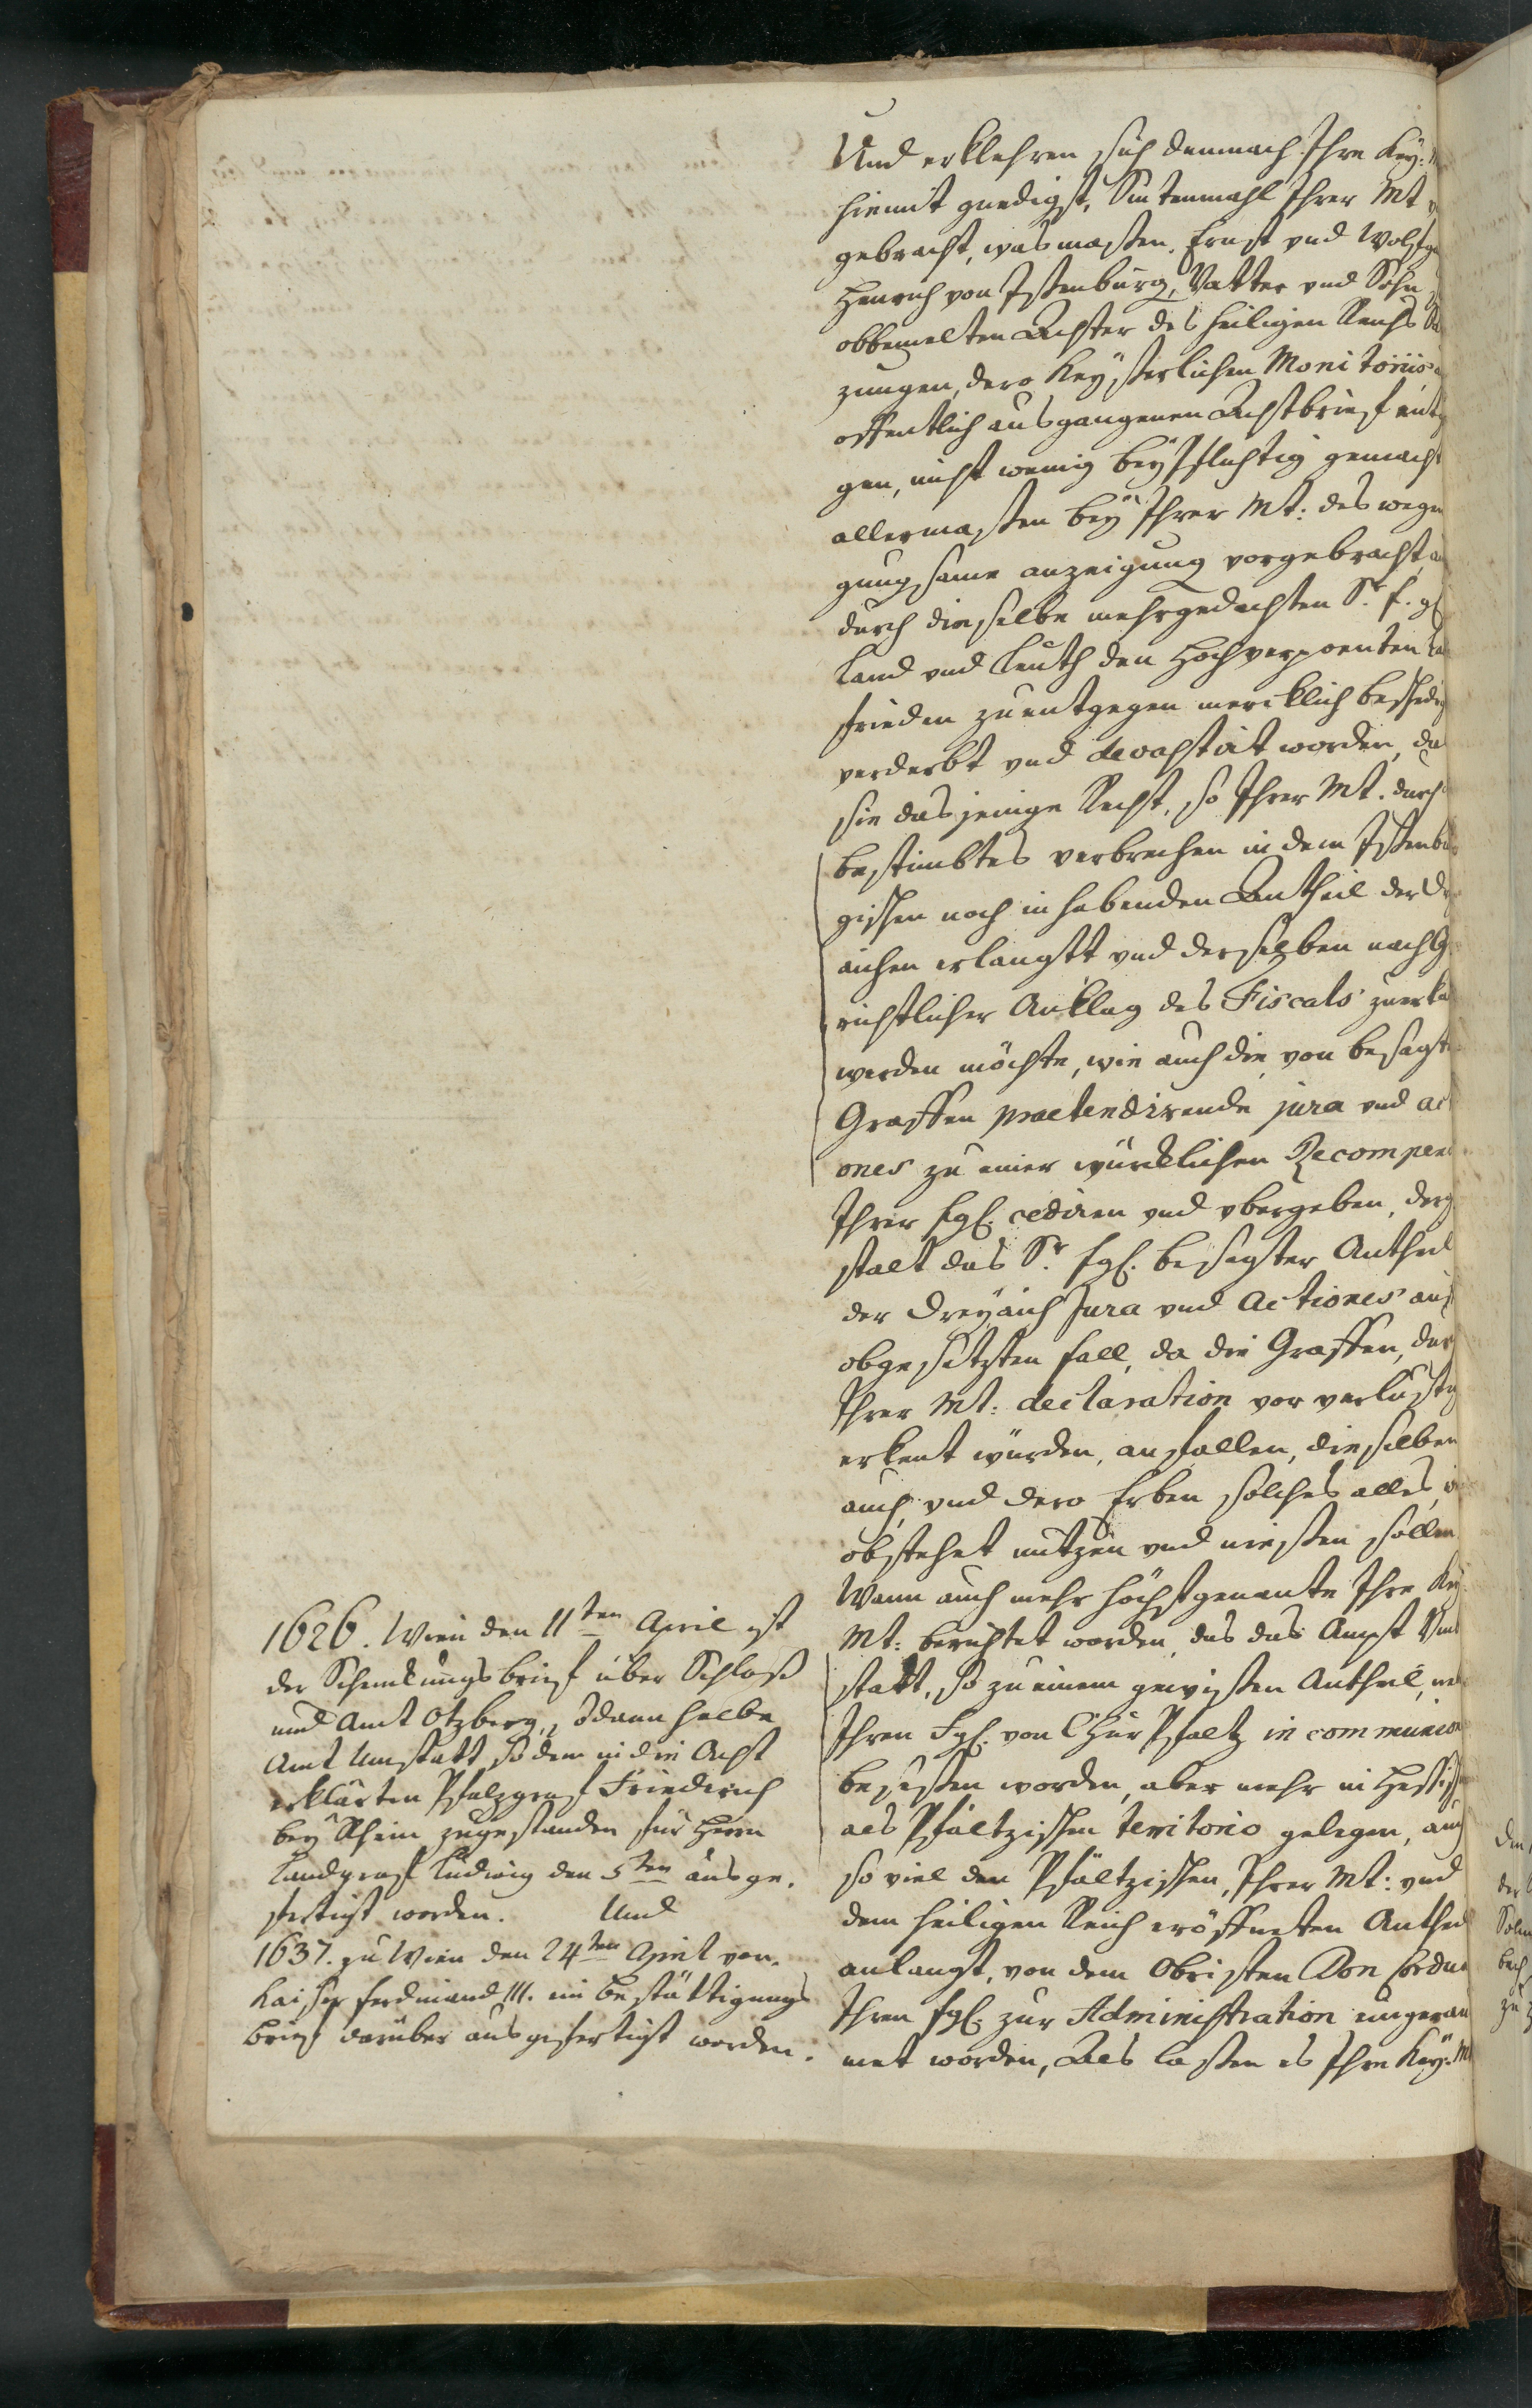 Und erklehren sich demnach Ihre Key:
hiemit gnedigst, Sintenmahl Ihrer Mt
gebracht, was massen, Ernst vnd Wolffg
Henrich von Isenburg, Vatter vnd Sohn,
obbemelten Aechter des heiligen Reichs
zungen, dero Keyserlichen Monitoriis
offentlich ausgangenen Achtbrieff entg
gen, nicht wenig beypflichtig gemacht
allermassen bey Ihrer Mt: deswegen
gungsame anzeigung vorgebracht,
durch dieselbe mehrgedachten Sr. f. g
Land vnd Leuth den Hochverpoenten La
frieden zuentgegen mercklich beschedig
verderbt vnd devastirt worden, das
sie dasjenige Recht, so Ihrer Mt. durch
bestimbtes verbrechen in dem Isenbur
gischen noch inhabenden Antheil der Drey
aichen erlangtt vnd derselben nach G
richtlicher Anklag des Fiscals zuerka
werden möchte, wie auch die von besagte
Graffen praetendirende jura vnd acti
ones zu einer würcklichen Recompens
Ihrer fgl. cediren vnd vbergeben, derg
stalt das Sr. fgl. besagter Antheil
der Dreyaich Jura vnd Actiones auf
obgesetzten fall, da die Graffen, durch
Ihrer Mt: declaration vor verlustig
erkent würden, anfallen, dieselben
auch vnd dero Erben solches alles, wie
obstehet nutzen vnd niessen sollen
Wann auch mehr höchstgenante Ihre Key
Mt: berichtet worden, das das Ampt Vmb
statt, so zu einem gewissen Antheil,
Ihren Fgl. von Chur Pfaltz in communion
besessen worden, aber mehr in Hessisch
als Pfältzischen territorio gelegen, auch
so viel den Pfältzischen, Ihrer Mt: vnd
dem heiligen Reich eröffneten Antheil
anlangt, von dem Obristen Don Cordua
Ihren fgl. zur Administration eingerau
met worden, Als lassen es Ihre Key: M
1626. Wien den 11ten April ist
der Schenkungsbrief über Schloß
und Amt Otzberg, sodann halbe
Amt Umstatt so dem in die Acht
erklärten Pfalzgraf Friederich
bey Rhein zugestanden für Herrn
Landgraf Ludwig den 5ten ausge,
fertigt worden. Und
1637. zu Wien den 24ten April von
Kaiser Ferdinand III. ein Bestättigungs
brief darüber ausgefertigt worden.